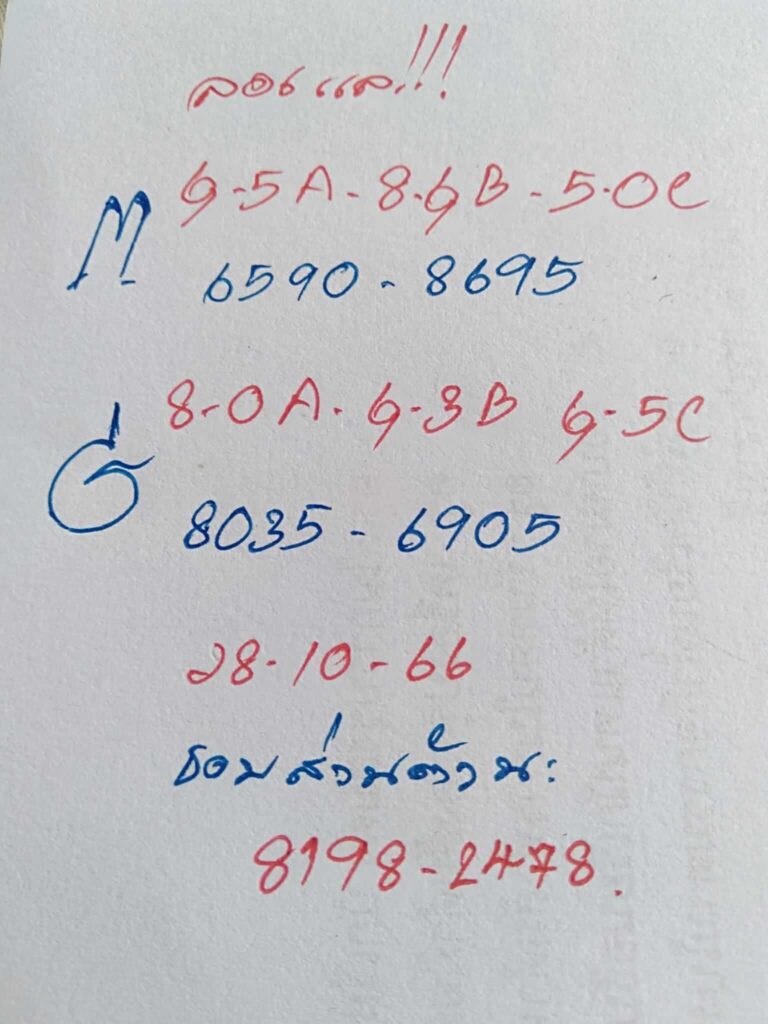 ลองแล!!!
6-5A-8-6B-5-0C
6590-8695
8-0A-6-3B 6-5C
8035-6905
28-10-66
ชอบส่วนตัวนะ
8198-2478.